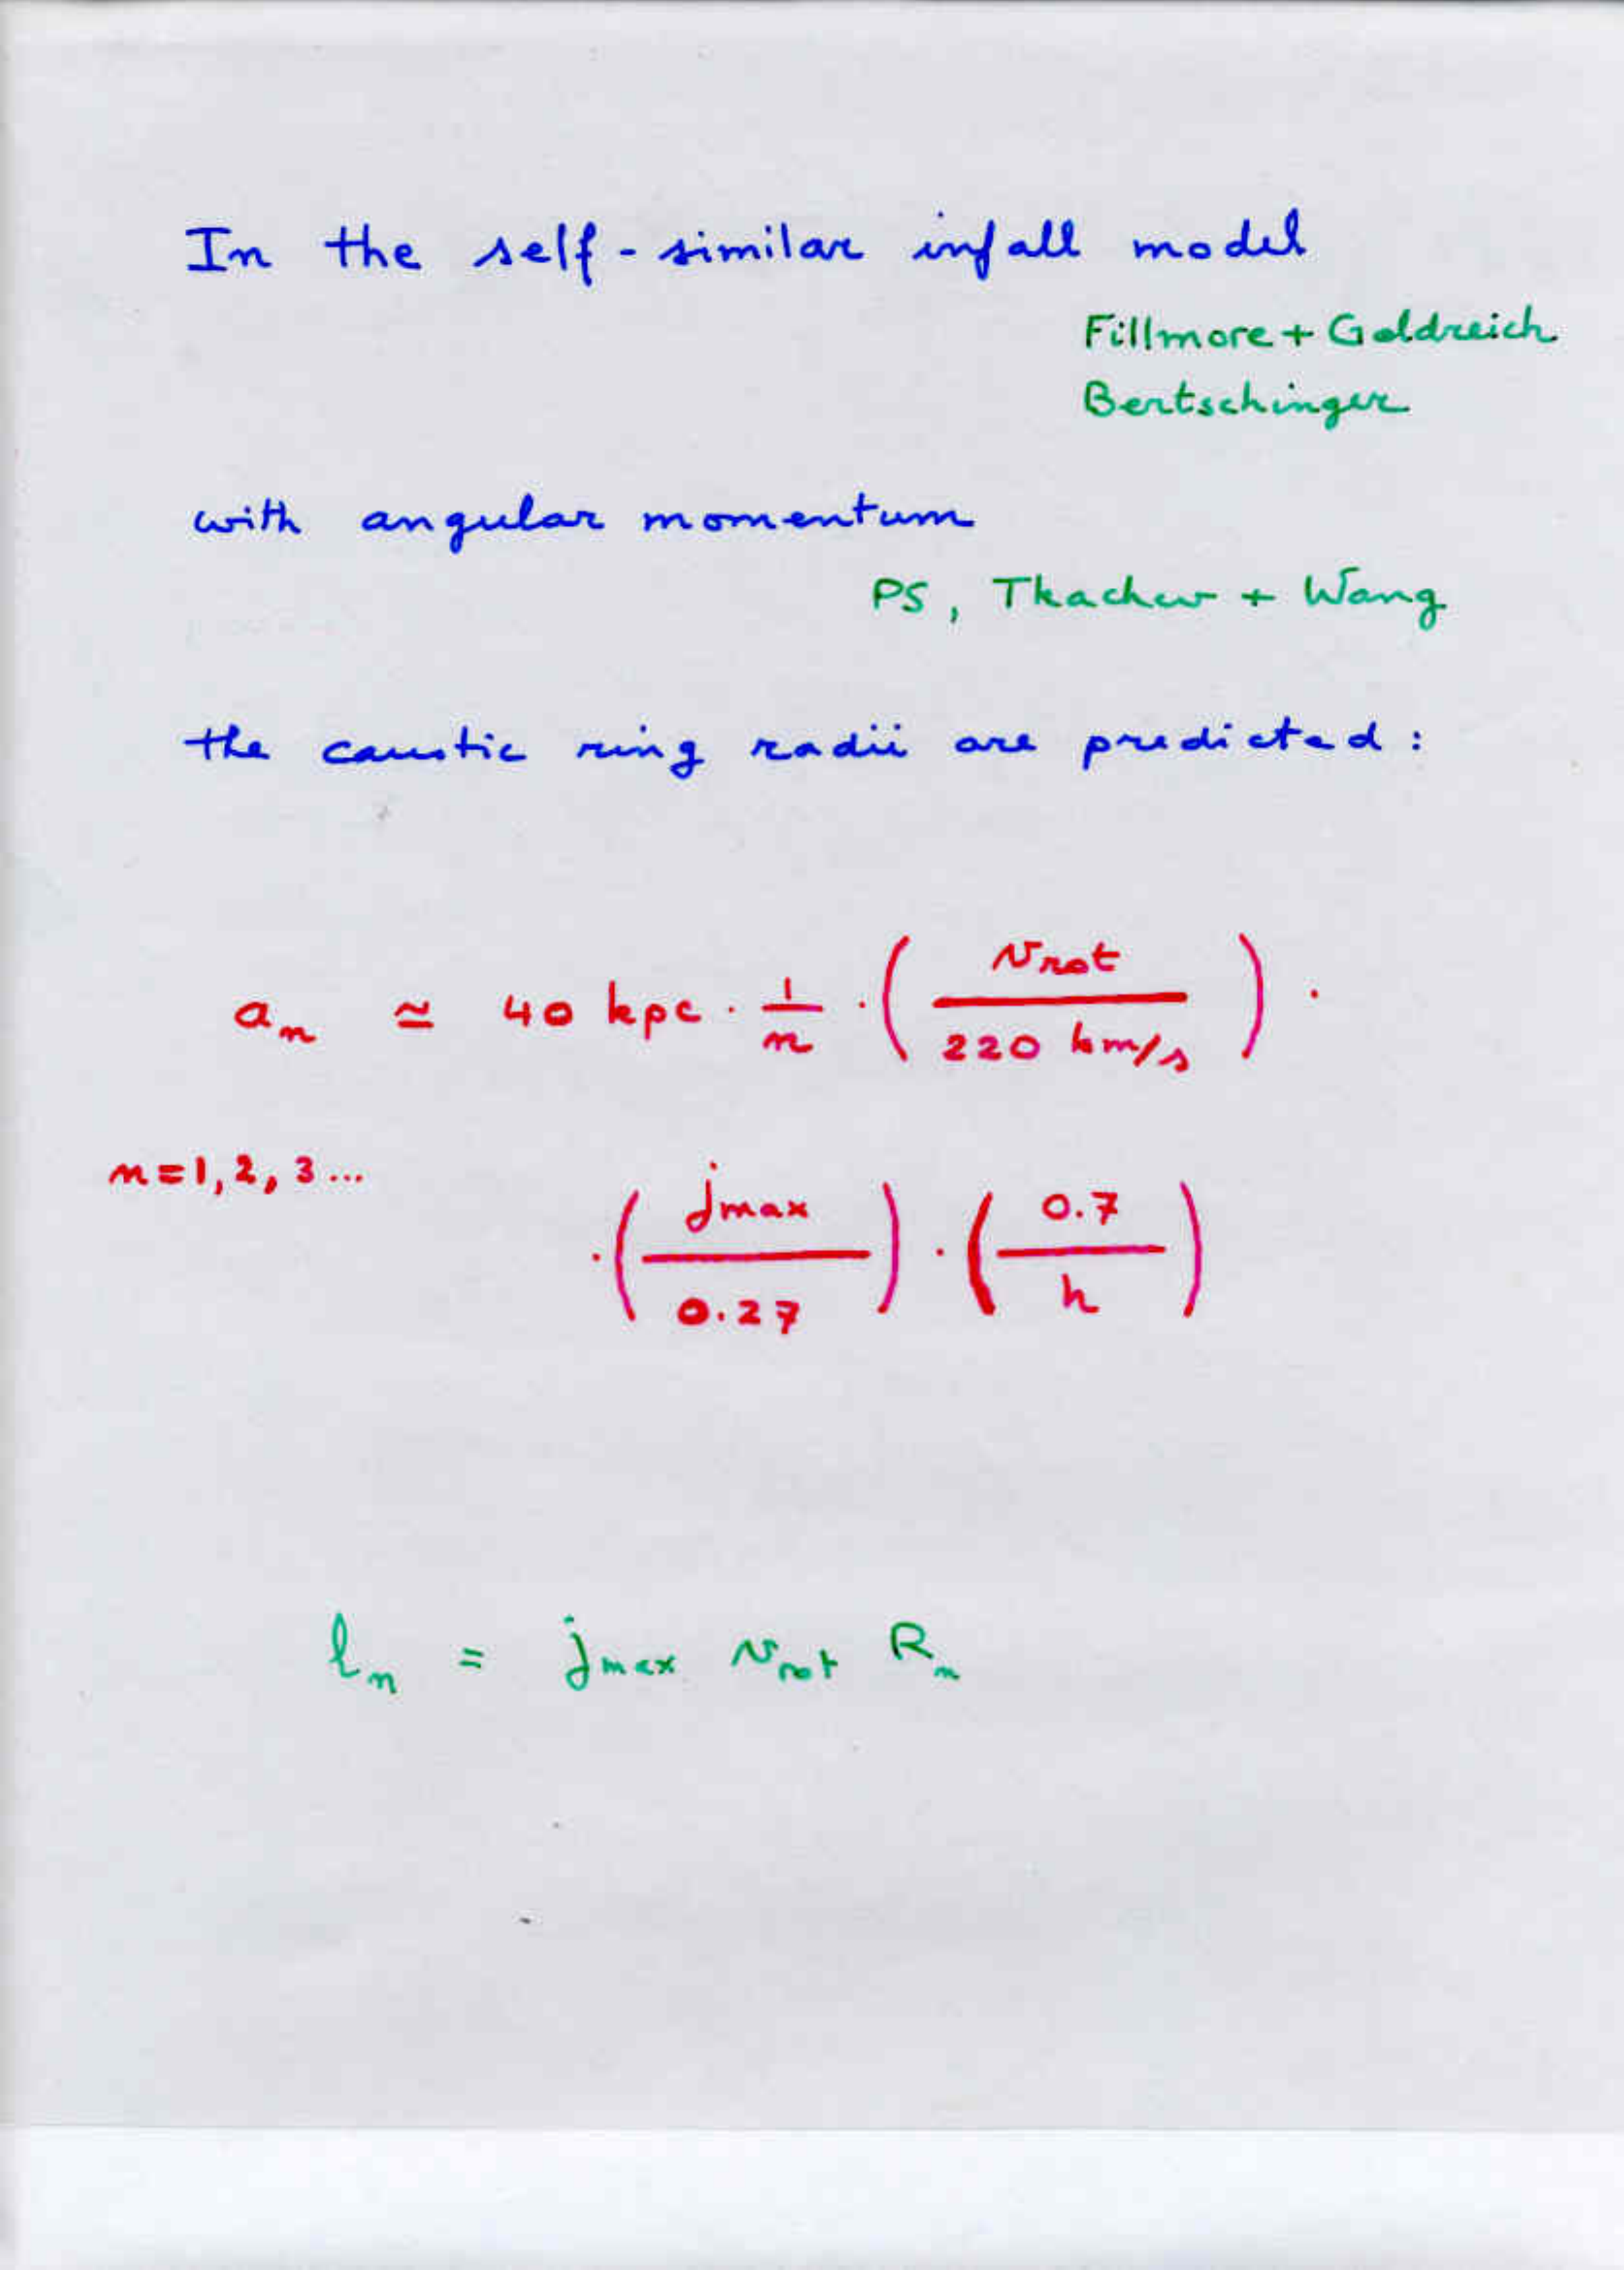 In the self-similar infall model
Fillmore + Goldreich
Bertschinger
with angular momentum
PS, Tkachev + Wang
the caustic ring radii are predicted:
a_n ≃ 40 kpc · 1/n · (v_rot / 220 km/s) ·
n=1, 2, 3 ...
· (j_max / 0.27) · (0.7 / h)
l_n = j_max v_rot R_n